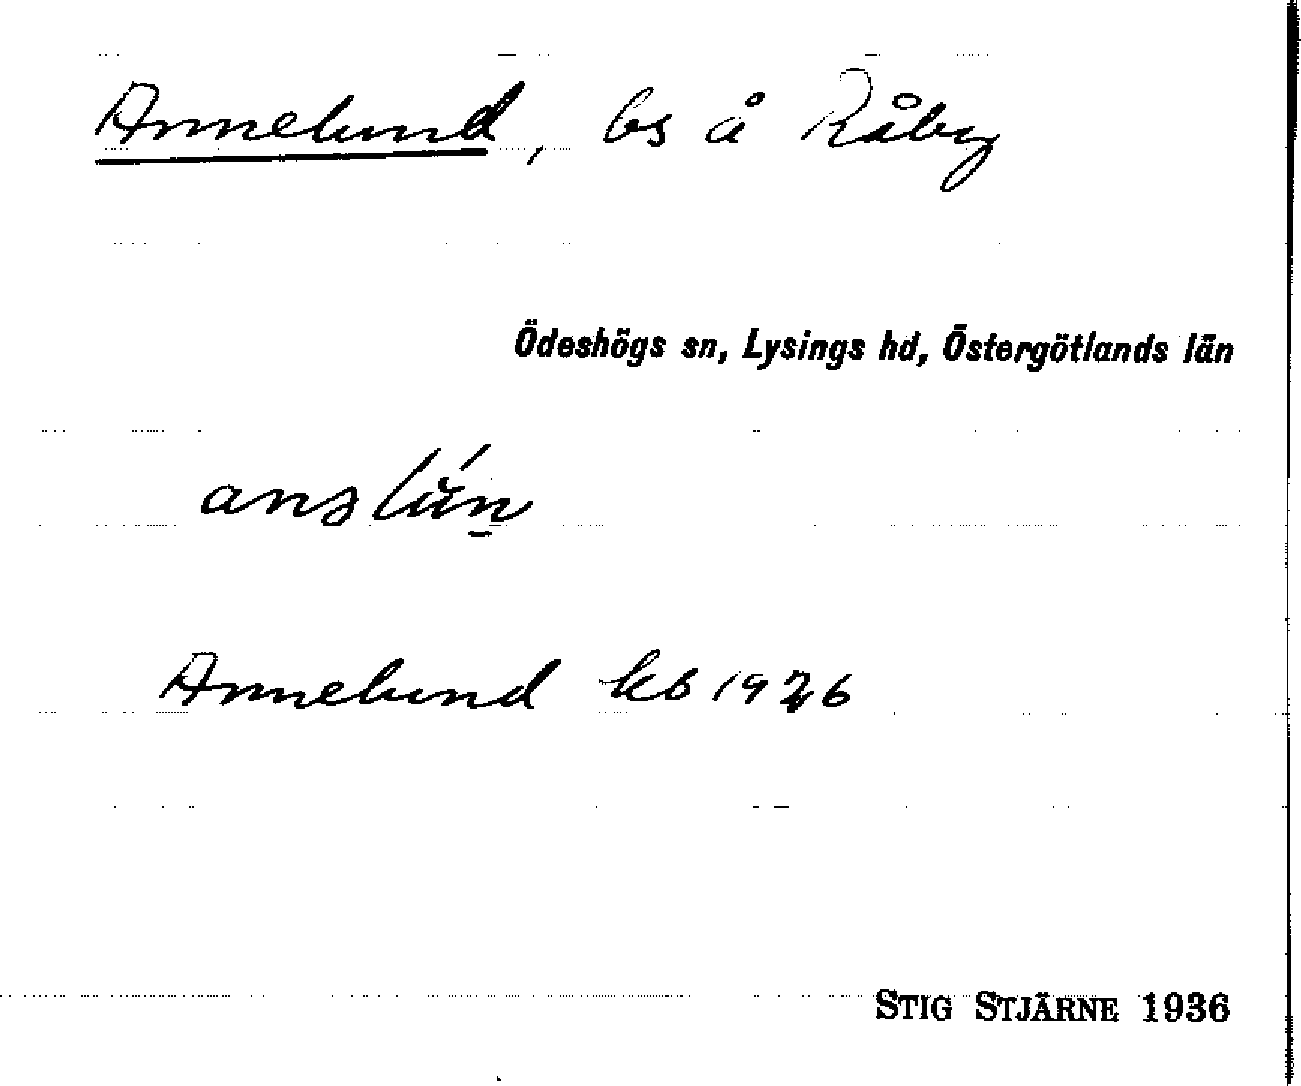 Annelund, bs å Råby
Ödeshögs sn, Lysings hd, Östergötlands län
Annelund kb 1926
STIG STJÄRNE 1936